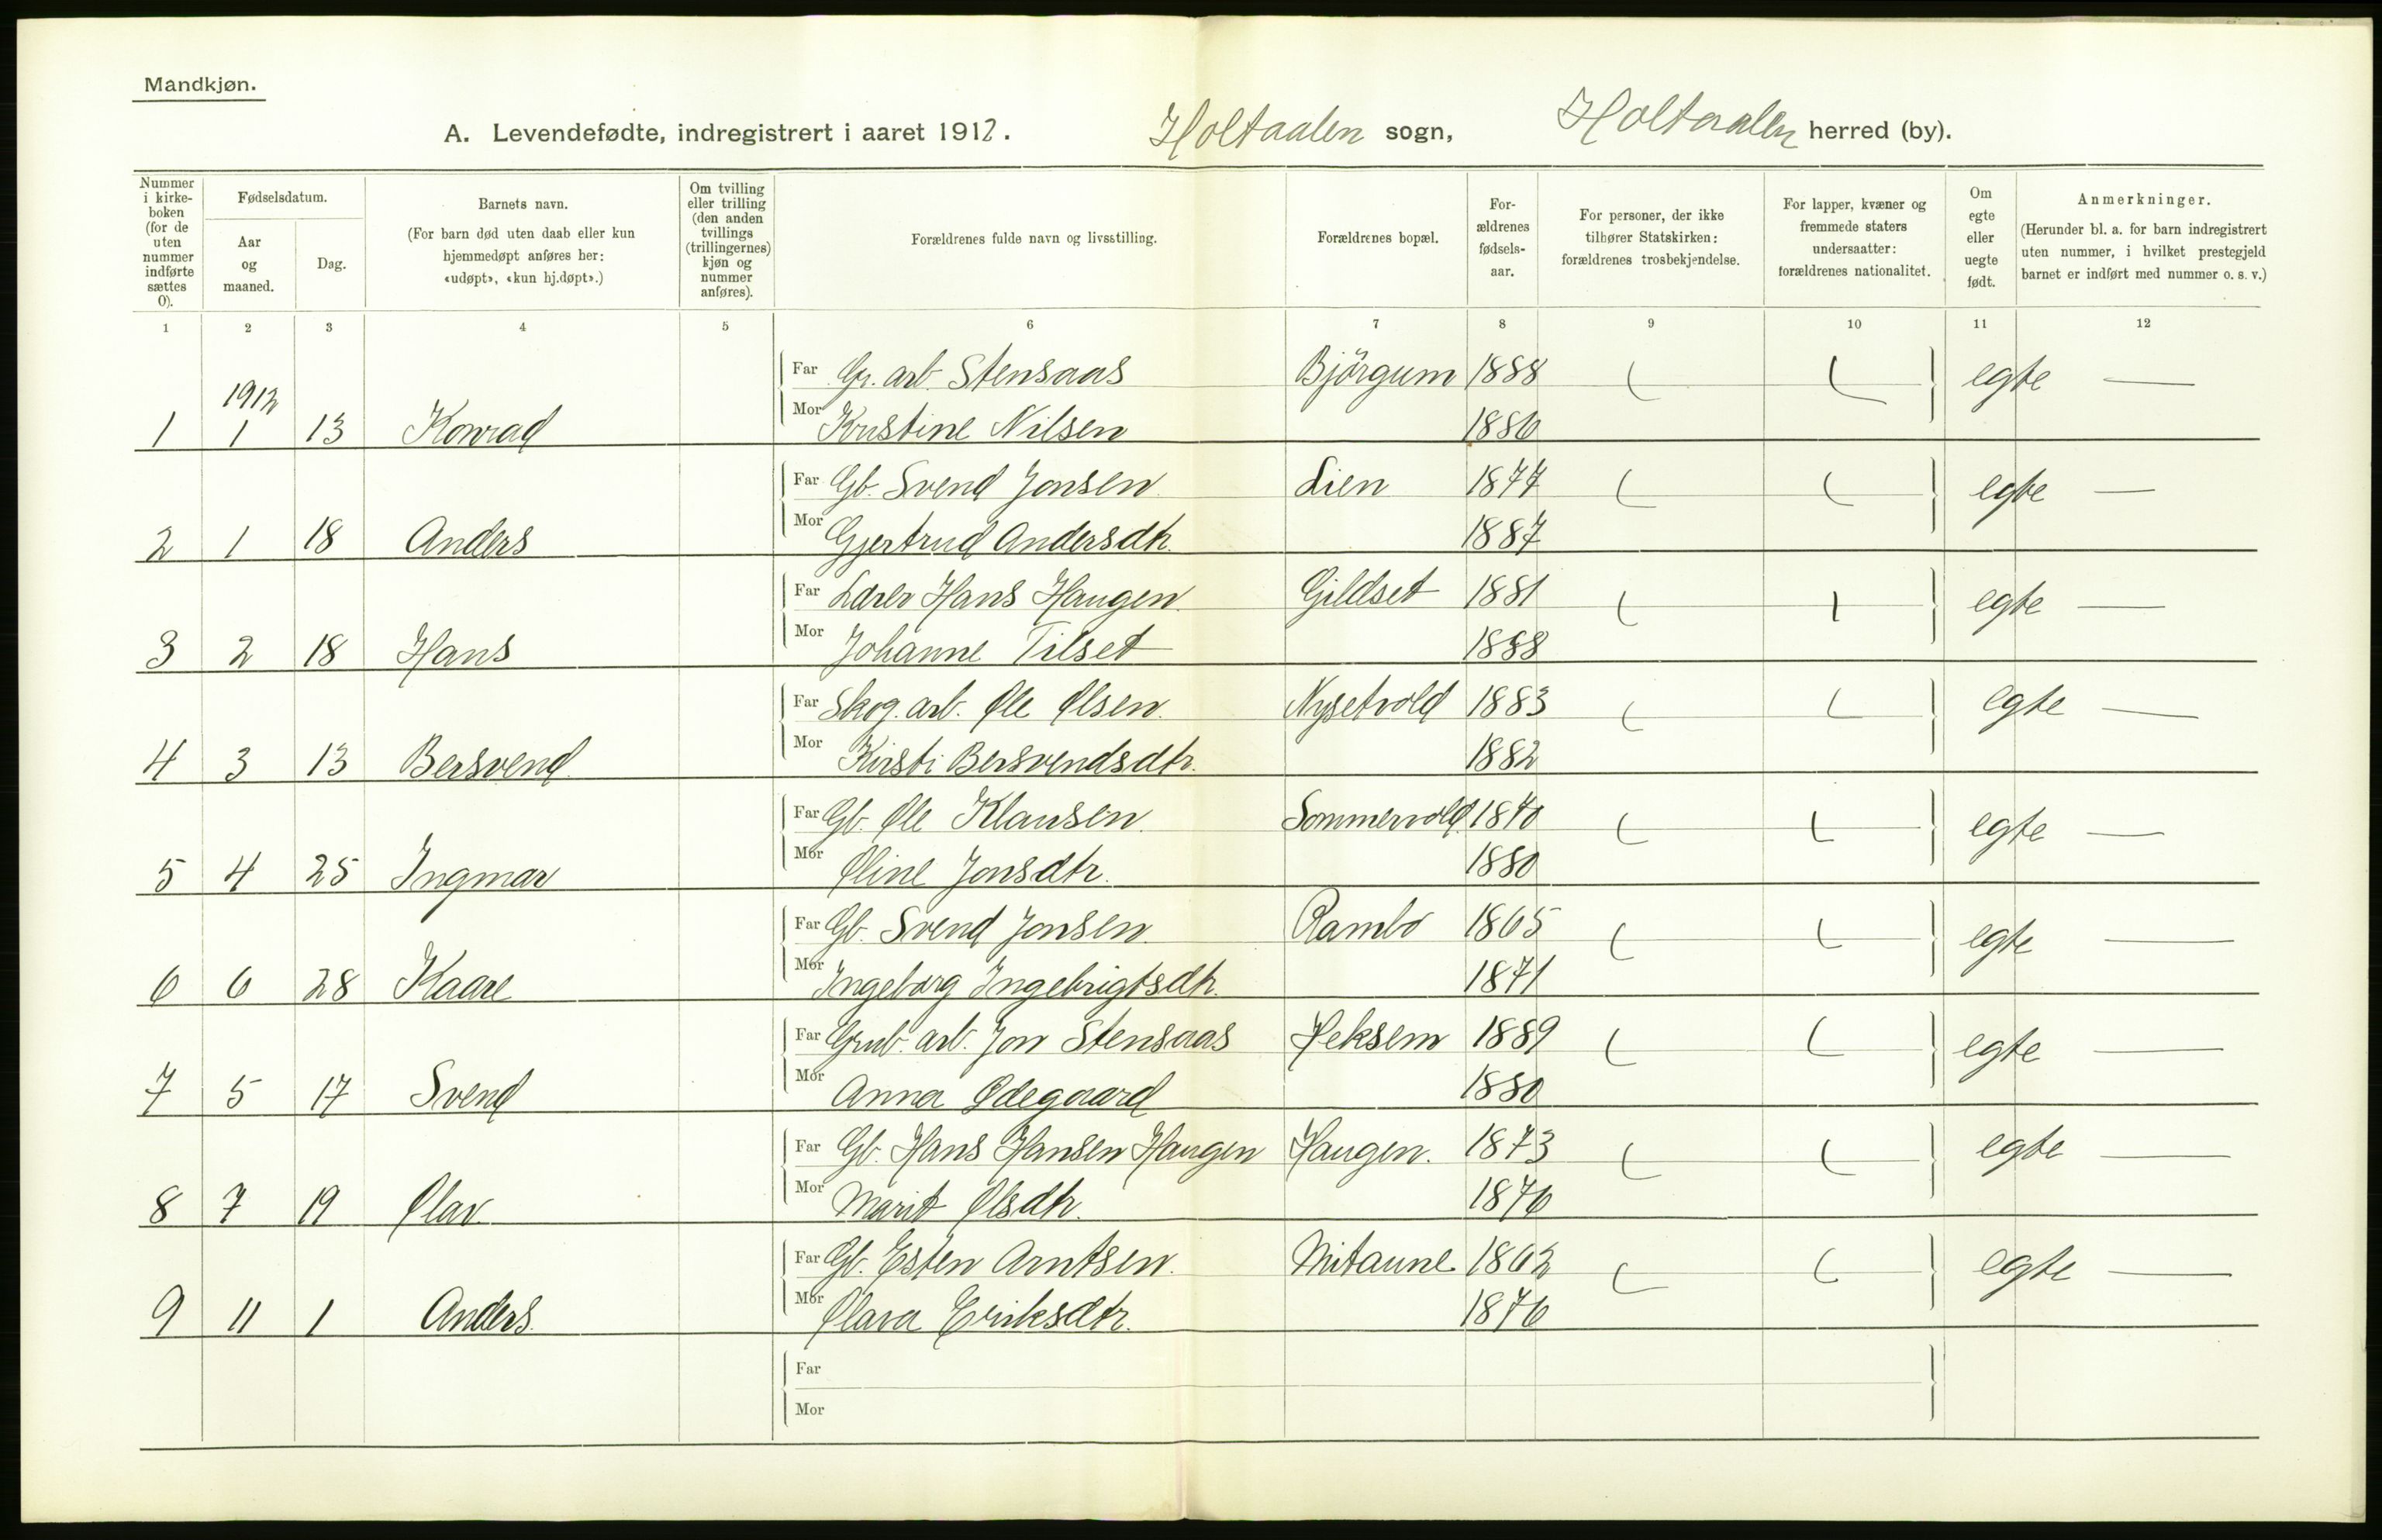 Mandkjøn.
A. Levendefødte, indregistrert i aaret 1912. Holtaalen sogn, Holtaalen herred (by).
Nummer i kirke-boken (for de uten nummer indførte sættes 0).
Fødselsdatum.
Aar og maaned.
Dag.
Barnets navn.
(For barn død uten daab eller kun hjemmedøpt anføres her: «udøpt», «kun hj.døpt».)
Om tvilling eller trilling (den anden tvillings (trillingernes) kjøn og nummer anføres).
Forældrenes fulde navn og livsstilling.
Forældrenes bopæl.
For-ældrenes fødsels-aar.
For personer, der ikke tilhører Statskirken: forældrenes trosbekjendelse.
For lapper, kvæner og fremmede staters undersaatter: forældrenes nationalitet.
Om egte eller uegte født.
Anmerkninger.
(Herunder bl. a. for barn indregistrert uten nummer, i hvilket prestegjeld barnet er indført med nummer o. s. v.)
1 2 3 4 5 6 7 8 9 10 11 12
Far Gr. arb. Stensaas Björgum 1888 egte —
1912
1 1 13 Konrad Mor Kristine Nilsen 1886
Far Gb. Svend Jonsen Lien 1877 egte —
2 1 18 Anders Mor Gjertrud Andersdtr. 1887
Far Lærer Hans Haugen Gildset 1881 egte —
3 2 18 Hans Mor Johanne Tilset 1888
Far Skog. arb. Ole Olsen Nysetvold 1883 egte —
4 3 13 Bersvend Mor Kirsti Bersvendsdtr. 1882
Far Gb. Ole Klausen Sommervold 1870 egte —
5 4 25 Ingmar Mor Oline Jonsdtr. 1880
Far Gb. Svend Jonsen Rambo 1865 egte —
6 6 28 Kaare Mor Ingeborg Ingebrigtsdtr. 1871
Far Grub. arb. Jon Stensaas Heksem 1889 egte —
7 5 17 Svend Mor Anna Ødegaard 1880
Far Gb. Hans Hansen Haugen Haugen. 1873 egte —
8 7 19 Olav Mor Marit Olsdtr. 1876
Far Gb. Esten Arntsen Mitaune 1862 egte —
9 11 1 Anders Mor Olava Eriksdtr. 1876
Far
Mor